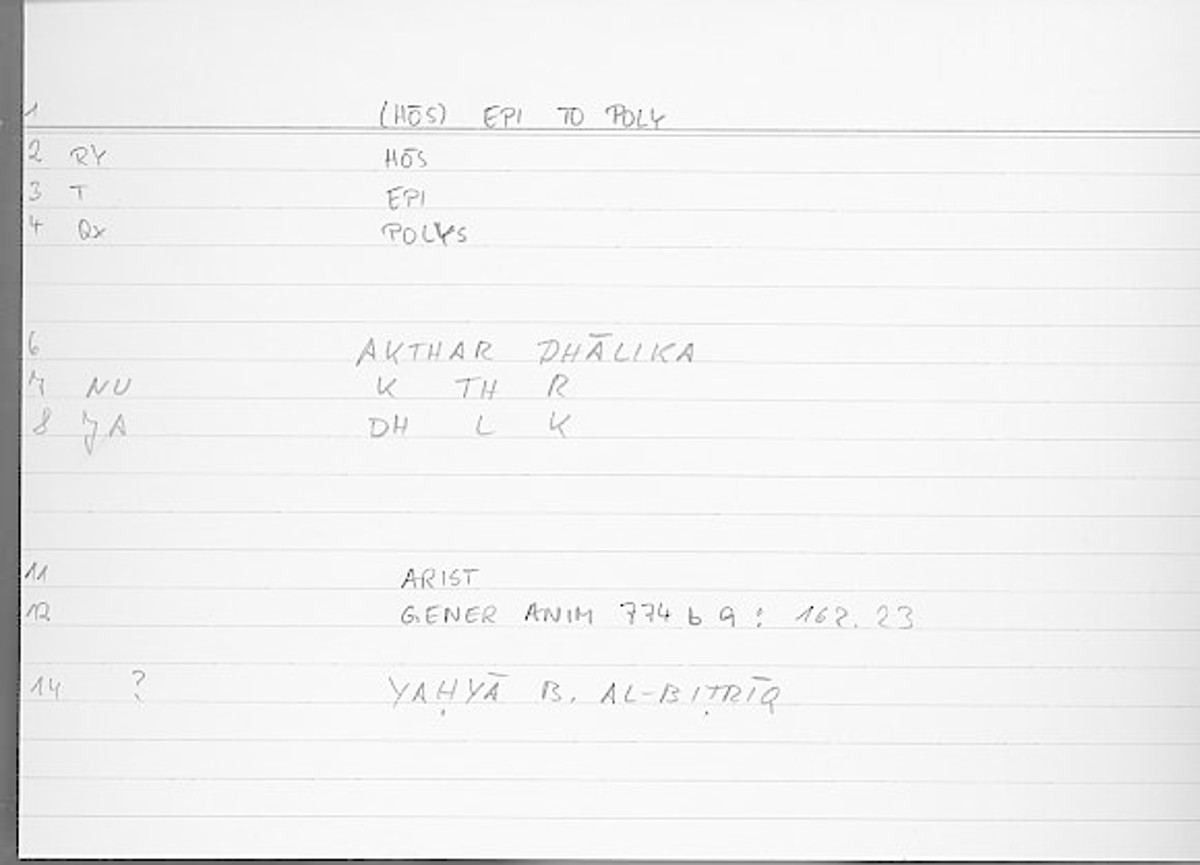 1 (HŌS) EPI TO POLY
2 RY HŌS
3 T EPI
4 Qx POLYS
6 AKTHAR DHĀLIKA
7 NU K TH R
8 JA DH L K
11 ARIST
12 GENER ANIM 774 b 9 : 162.23
14 ? YAḤYĀ B. AL-BIṬRĪQ